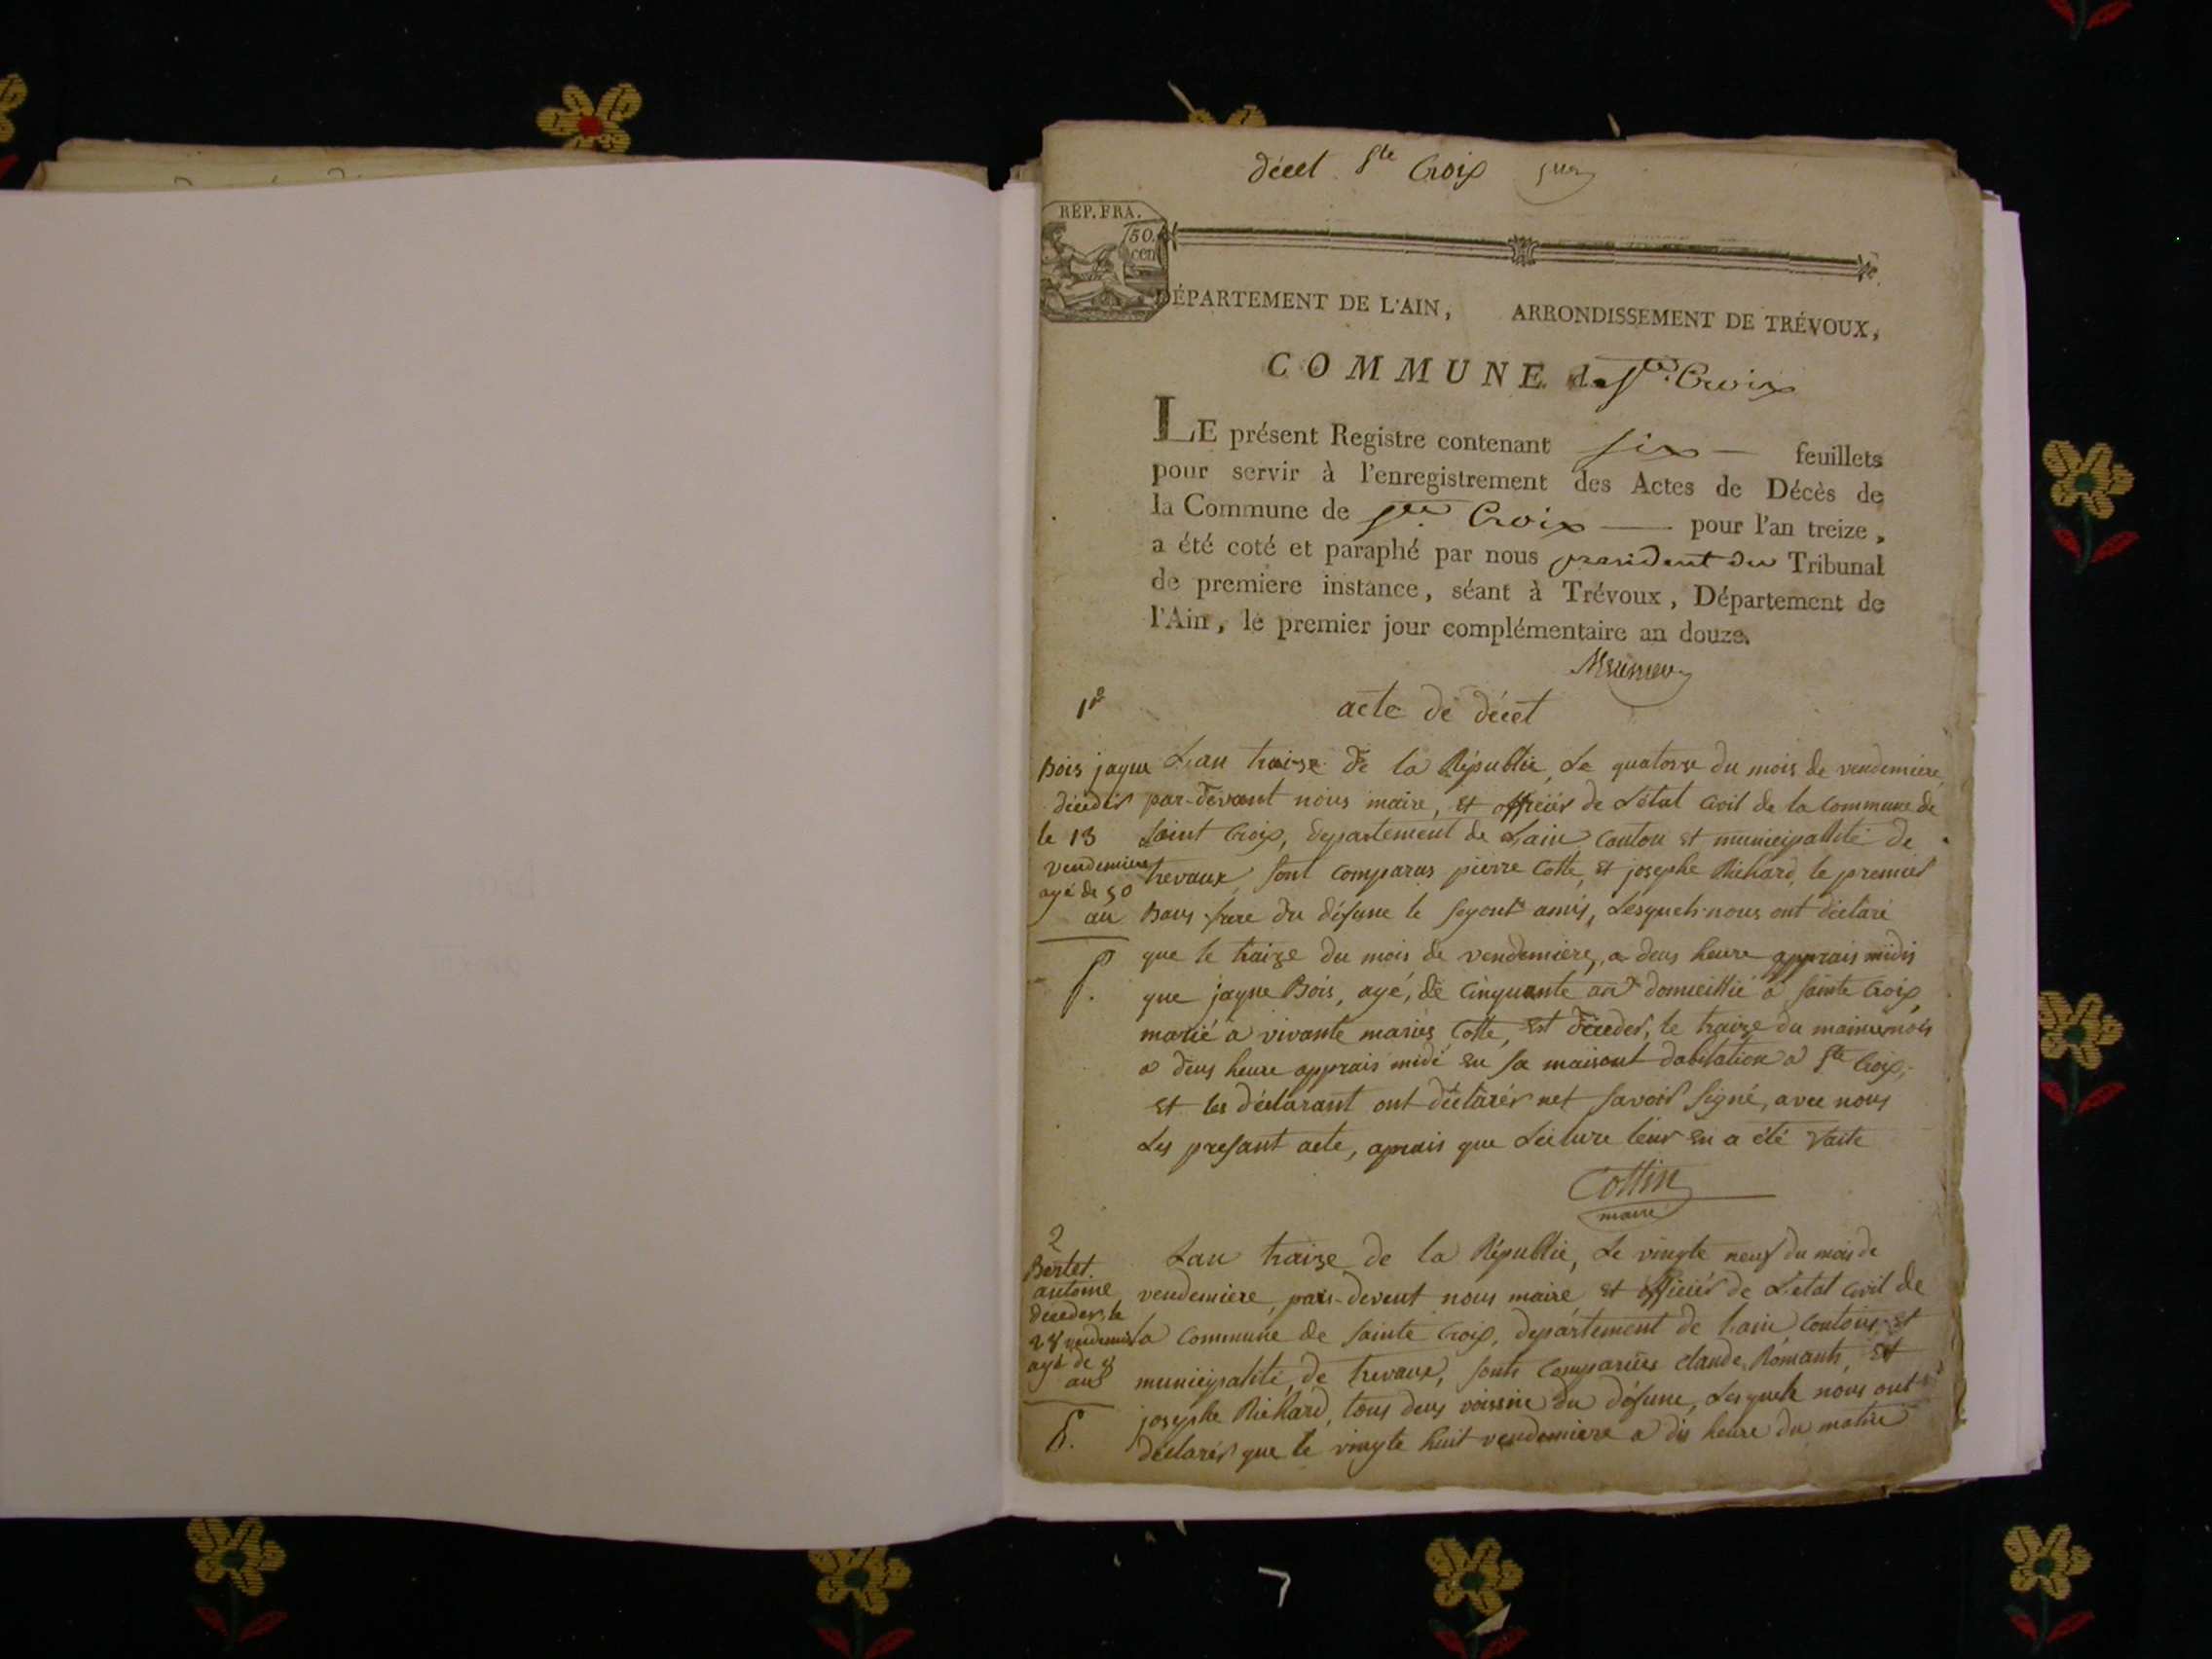 décet Ste Croix
RÉP. FRA.
50.
cen
DÉPARTEMENT DE L'AIN, ARRONDISSEMENT DE TRÉVOUX,
COMMUNE de Ste. Croix
LE présent Registre contenant six feuillets
pour servir à l'enregistrement des Actes de Décès de
la Commune de Ste. Croix pour l'an treize,
a été coté et paraphé par nous président du Tribunal
de premiere instance, séant à Trévoux, Département de
l'Ain, le premier jour complémentaire an douze.
1er
acte de décet
Bois jaque
décedér
le 13
vendemiere
agé de 50
an
Lan traize de la Républic, Le quatorze du mois de vendemiere,
par-devant nous maire, et officiér de Létat civil de la Commune de
Saint Croix, département de Lain canton et municipallité de
trevaux, sont comparus pierre Cotte, et josephe Richard, le premier
Baus frere du défunc le segont amis, Lesquels nous ont déclaré
que le traize du mois de vendemiere, a deus heure apprais midis
que jaque Bois, agé, de Cinquante an domicillié a sainte Croix,
marié a vivante mariés Cotte, est décedér, le traize du maimemois
a deus heure apprais midi en sa maisont dabitation a Ste Croix,
et les déclarant ont déclarér net savoir signé, avec nous
Les presant acte, aprais que Lecture leur en a été faite
Cottin
maire
2
Bertet
antoine
décedér le
28 vendemier
agé de 8
ans
Lan traize de la Républic, Le vingte neuf du mois de
vendemiere, pars-devent nous maire et officiér de Létat civil de
la Commune de sainte Croix, département de lain Contons et
municipalité, de trevaux, sonts Comparües claude Romants, et
josephe Richard, tous deus voissin du défunc, Lesquels nous ont
déclarér que le vingte huit vendemiere a dis heure du matin